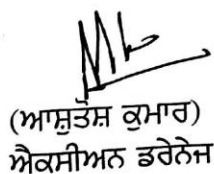 (ਆਸ਼ੁਤੋਸ਼ ਕੁਮਾਰ)
ਐਕਸੀਅਨ ਡਰੇਨੇਜ